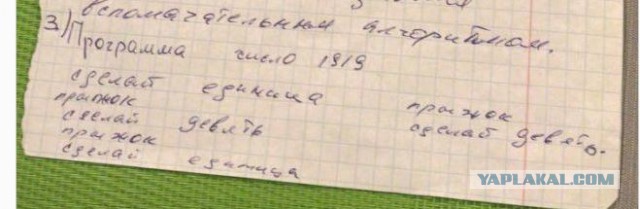 вспомагательным алгоритмом.
3) Программа число 1919
сделай единица
прыжок
сделай девять
прыжок
сделай единица
прыжок
сделай девять.
YAPLAKAL.COM